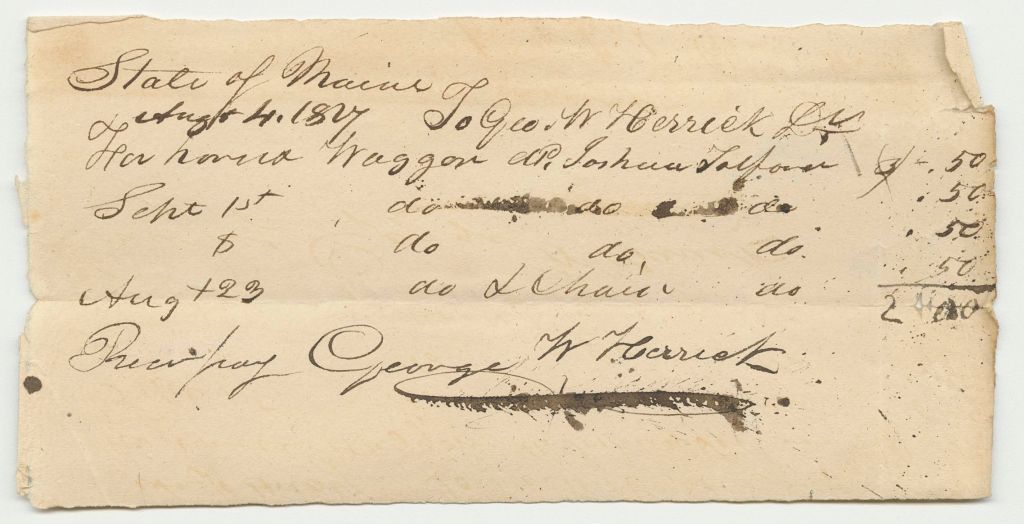 State of Maine
Augt 4. 1827 To Geo. W Herrick Dr
For horse & Waggon Joshua Tolford $ - .50
Sept 1st do do do .50
8 do do do .50
Augt 23 do & Chaise do .50
2.00
Recd pay George W Herrick